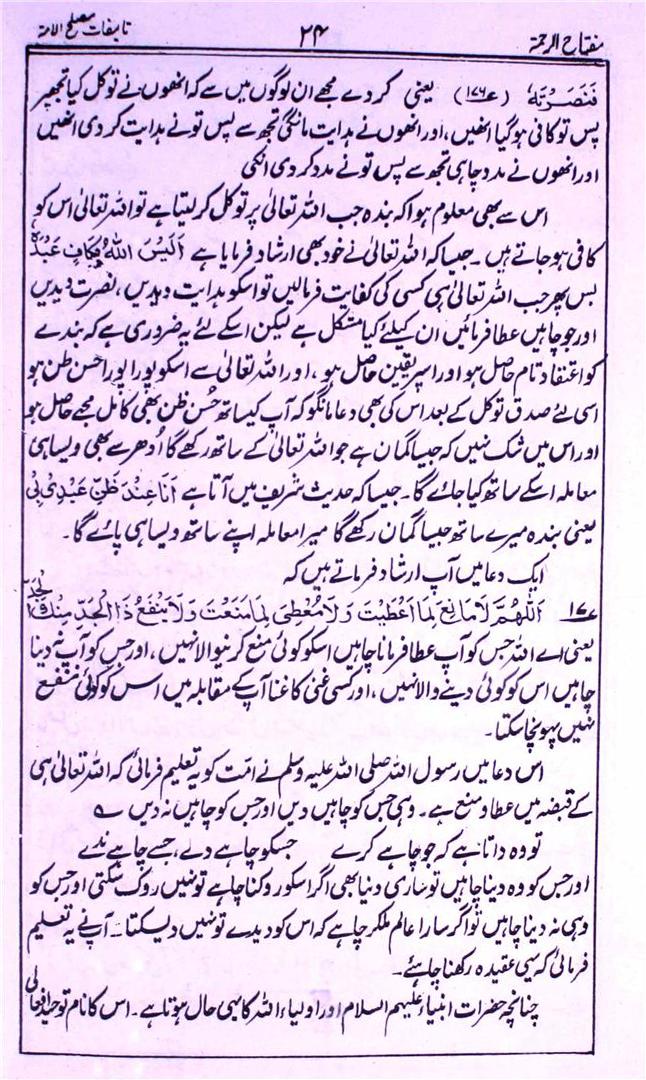 مفتاح الرحمۃ ۲۴ تالیفات مصلح الامۃ
فَنَصَرْتَهٗ (ع۱۷۶) یعنی کر دے مجھے ان لوگوں میں سے کہ انھوں نے توکل کیا تجھپر
پس تو کافی ہوگیا انھیں، اور انھوں نے ہدایت مانگی تجھ سے پس تو نے ہدایت کر دی انھیں
اور انھوں نے مدد چاہی تجھ سے پس تو نے مدد کر دی انکی
اس سے بھی معلوم ہوا کہ بندہ جب اللہ تعالیٰ پر توکل کر لیتا ہے تو اللہ تعالیٰ اس کو
کافی ہو جاتے ہیں۔ جیسا کہ اللہ تعالیٰ نے خود بھی ارشاد فرمایا ہے اَلَیْسَ اللّٰہُ بِکَافٍ عَبْدَہٗ
بس پھر جب اللہ تعالیٰ ہی کسی کی کفایت فرمالیں تو اسکو ہدایت دیدیں، نصرت دیدیں
اور جو چاہیں عطا فرمائیں ان کیلئے کیا مشکل ہے لیکن اسکے لئے یہ ضروری ہے کہ بندے
کو اعتقاد تام حاصل ہو اور اسپر یقین حاصل ہو، اور اللہ تعالیٰ سے اسکو پورا پورا حسن ظن ہو
اسی لئے صدق توکل کے بعد اس کی بھی دعا مانگو کہ آپ کیساتھ حُسن ظن بھی کامل مجھے حاصل ہو
اور اس میں شک نہیں کہ جیسا گمان ہے جو اللہ تعالیٰ کے ساتھ رکھے گا اُدھر سے بھی ویسا ہی
معاملہ اسکے ساتھ کیا جائے گا۔ جیسا کہ حدیث شریف میں آتا ہے اَنَا عِنْدَ ظَنِّ عَبْدِیْ بِیْ
یعنی بندہ میرے ساتھ جیسا گمان رکھے گا میرا معاملہ اپنے ساتھ ویسا ہی پائے گا۔
ایک دعا میں آپ ارشاد فرماتے ہیں کہ
۱۷ اَللّٰھُمَّ لَا مَانِعَ لِمَا اَعْطَیْتَ وَلَا مُعْطِیَ لِمَا مَنَعْتَ وَلَا یَنْفَعُ ذَا الْجَدِّ مِنْکَ الْجَدُّ
یعنی اے اللہ جس کو آپ عطا فرمانا چاہیں اسکو کوئی منع کرنیوالا نہیں، اور جس کو آپ نہ دینا
چاہیں اس کو کوئی دینے والا نہیں، اور کسی غنی کا غنا آپ کے مقابلہ میں اس کو کوئی نفع
نہیں پہونچا سکتا۔
اس دعا میں رسول اللہ صلی اللہ علیہ وسلم نے امّت کو یہ تعلیم فرمائی کہ اللہ تعالیٰ ہی
کے قبضہ میں عطا و منع ہے۔ وہی جس کو چاہیں دیں اور جس کو چاہیں نہ دیں ؎
تو وہ داتا ہے کہ جو چاہے کرے جسکو چاہے دے، جسے چاہے نہ دے
اور جس کو وہ دینا چاہیں تو ساری دنیا بھی اگر اسکو روکنا چاہے تو نہیں روک سکتی اور جس کو
وہی نہ دینا چاہیں تو اگر سارا عالم ملکر چاہے کہ اس کو دیدے تو نہیں دیسکتا۔ آپ نے یہ تعلیم
فرمائی کہ یہی عقیدہ رکھنا چاہئے۔
چنانچہ حضرات انبیاء علیہم السلام اور اولیاء اللہ کا یہی حال ہوتا ہے۔ اس کا نام توحید افعالی